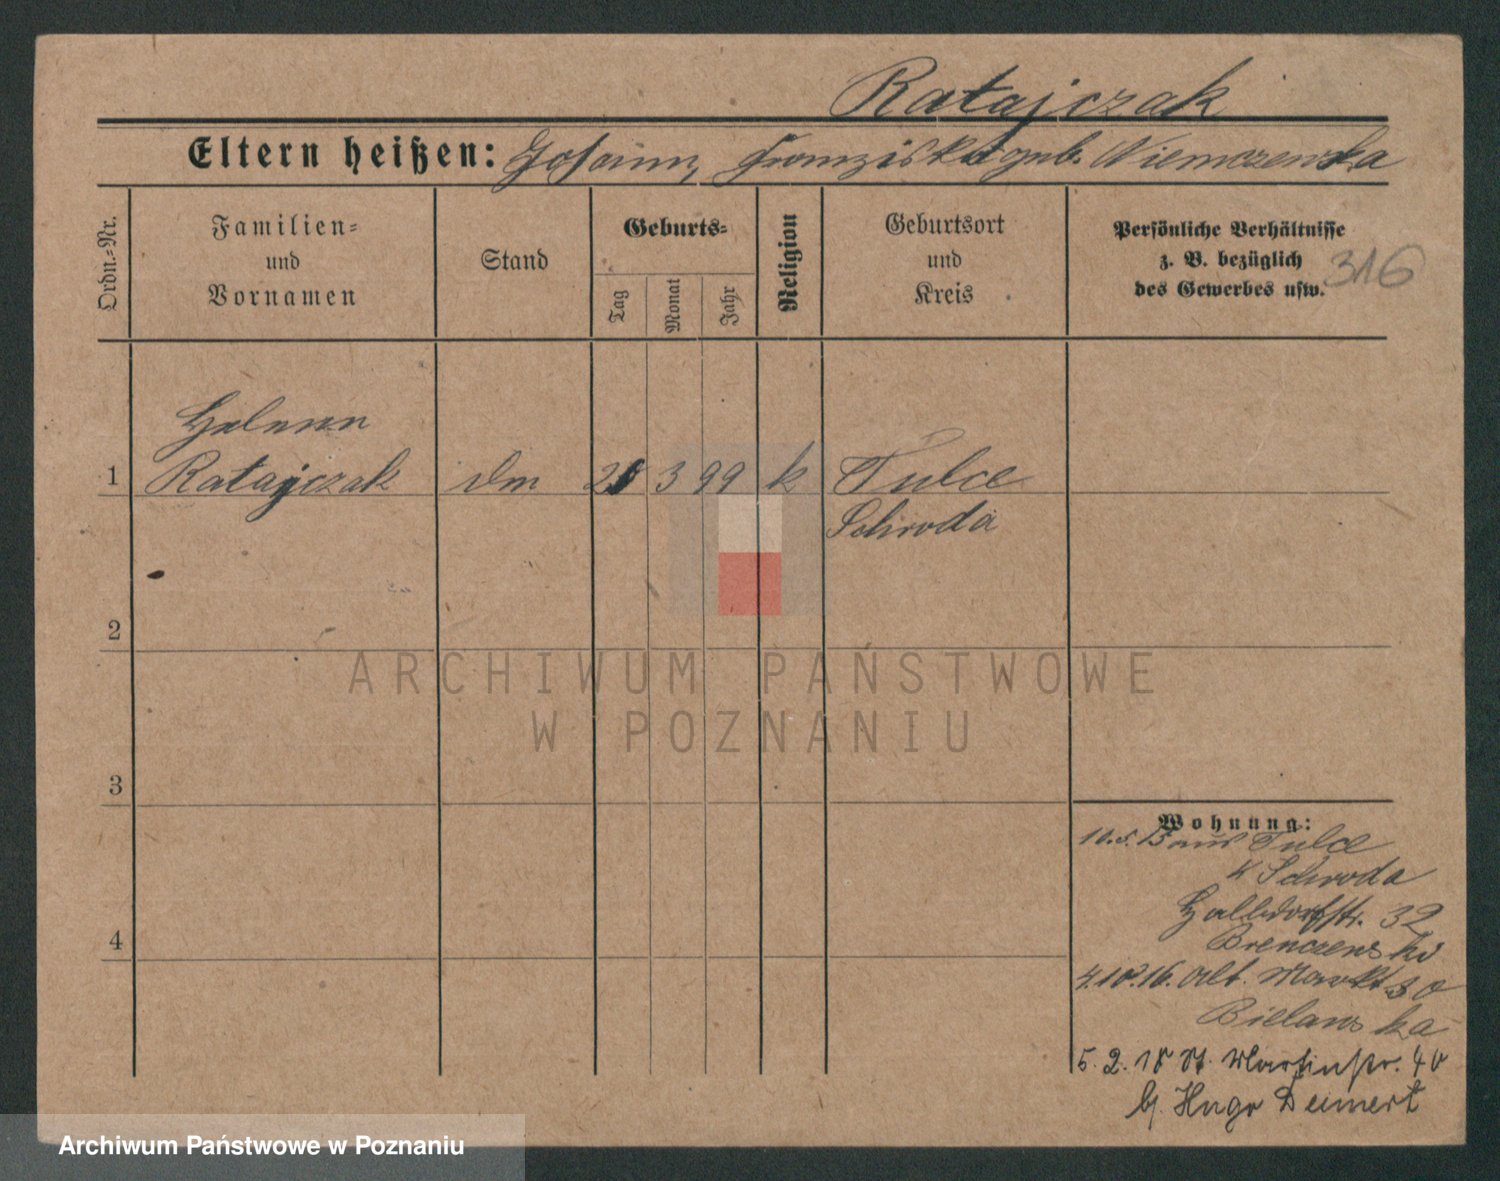 Ratajczak
Eltern heißen: Johann, Franziska geb. Niemczewska
Ordn.-Nr.
Familien-
und
Vornamen
Stand
Geburts-
Tag
Monat
Jahr
Religion
Geburtsort
und
Kreis
Persönliche Verhältnisse
z. B. bezüglich
des Gewerbes usw.
316
Helene
1 Ratajczak dm 3 99 k Tulce
Schroda
2
3
4
ARCHIWUM PAŃSTWOWE
W POZNANIU
Wohnung:
10.5.15 aus Tulce
K Schroda
Halbdorfstr. 32
4.10.16. Alt. Markt
Bielanska
5.2.18 St. Martinstr. 40
b/ Hugo Deimert
Archiwum Państwowe w Poznaniu